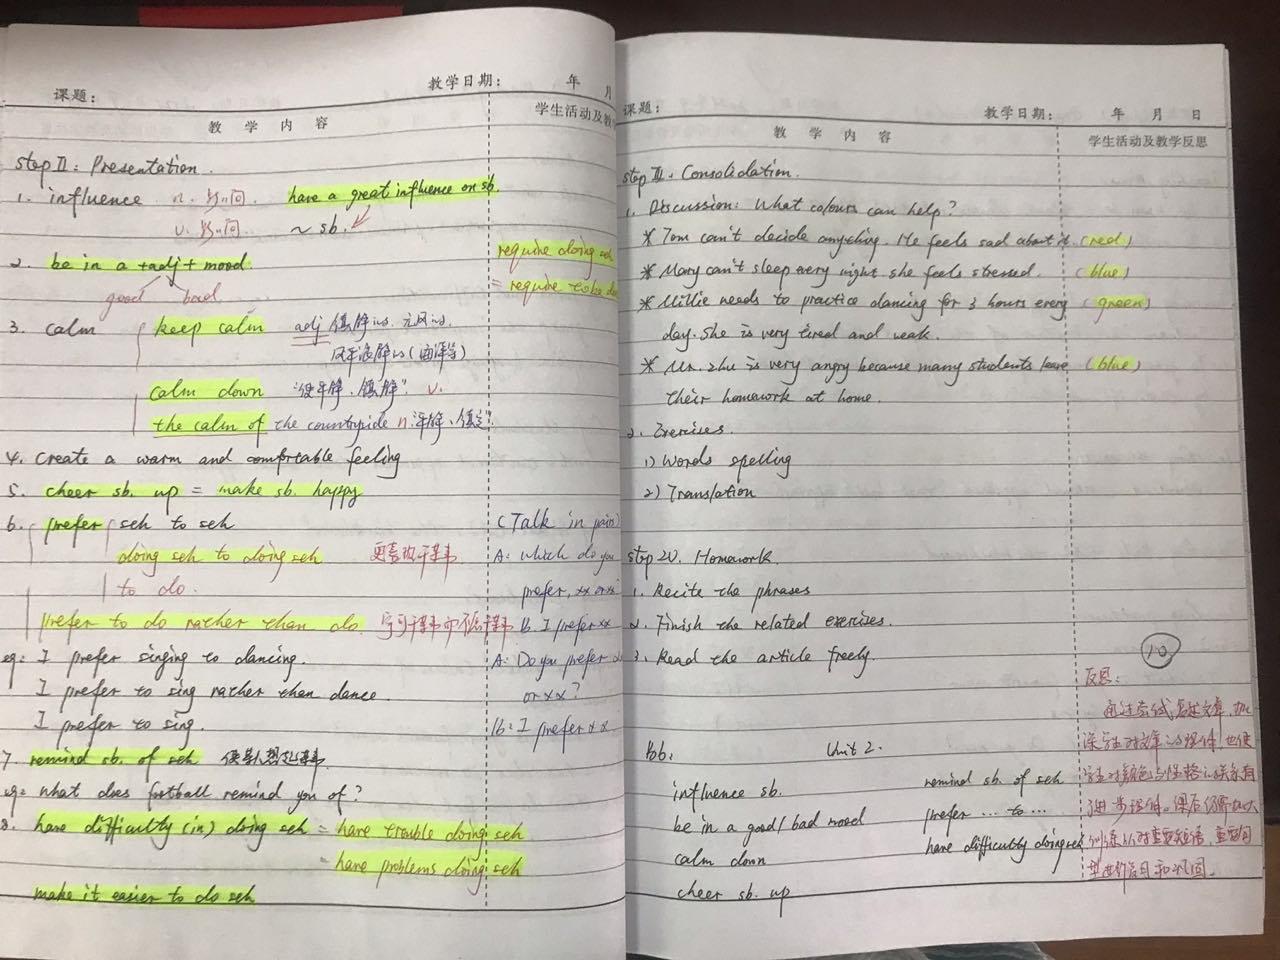 课题：
教学日期： 年 月
教 学 内 容
学生活动及教
Step II: Presentation.
1. influence n. 影响. have a great influence on sb.
v. 影响. ~ sb.
2. be in a +adj + mood.
good bad
require doing sth
= require to be do
3. calm keep calm adj 镇静的. 无风的.
风平浪静的(海洋等)
calm down "使平静、镇静". v.
the calm of the countryside n.平静、镇定".
4. Create a warm and comfortable feeling
5. cheer sb. up = make sb. happy
6. prefer sth to sth
doing sth to doing sth 更喜欢干某事
to do.
prefer to do rather than do. 宁可干某事而不愿干某事
eg: I prefer singing to dancing.
I prefer to sing rather than dance.
I prefer to sing.
(Talk in pairs)
A: Which do you
prefer, xx or x
B. I prefer xx
A: Do you prefer
or xx?
B: I prefer xx.
7. remind sb. of sth 使某人想起某事.
eg: What does football remind you of?
8. have difficulty (in) doing sth = have trouble doing sth
= have problems doing sth
make it easier to do sth
课题：
教学日期： 年 月 日
教 学 内 容
学生活动及教学反思
Step III. Consolidation.
1. Discussion: What colours can help?
* Tom can't decide anything. He feels sad about it. (red)
* Mary can't sleep every night. She feels stressed. (blue)
* Millie needs to practice dancing for 3 hours every (green)
day. She is very tired and weak.
* Mr. Zhu is very angry because many students leave (blue)
their homework at home.
2. Exercises.
1) Words spelling
2) Translation
Step IV. Homework.
1. Recite the phrases
2. Finish the related exercises.
3. Read the article freely.
10
反思：
通过尝试复述文章，加
深学生对文章的理解，也使
学生对颜色与性格的关系有
了进一步理解。课后仍需加大
训练以对重要短语、重要句
型进行启目和巩固.
Bb: Unit 2.
influence sb. remind sb. of sth
be in a good/bad mood prefer ... to ...
calm down have difficulty doing sth
cheer sb. up